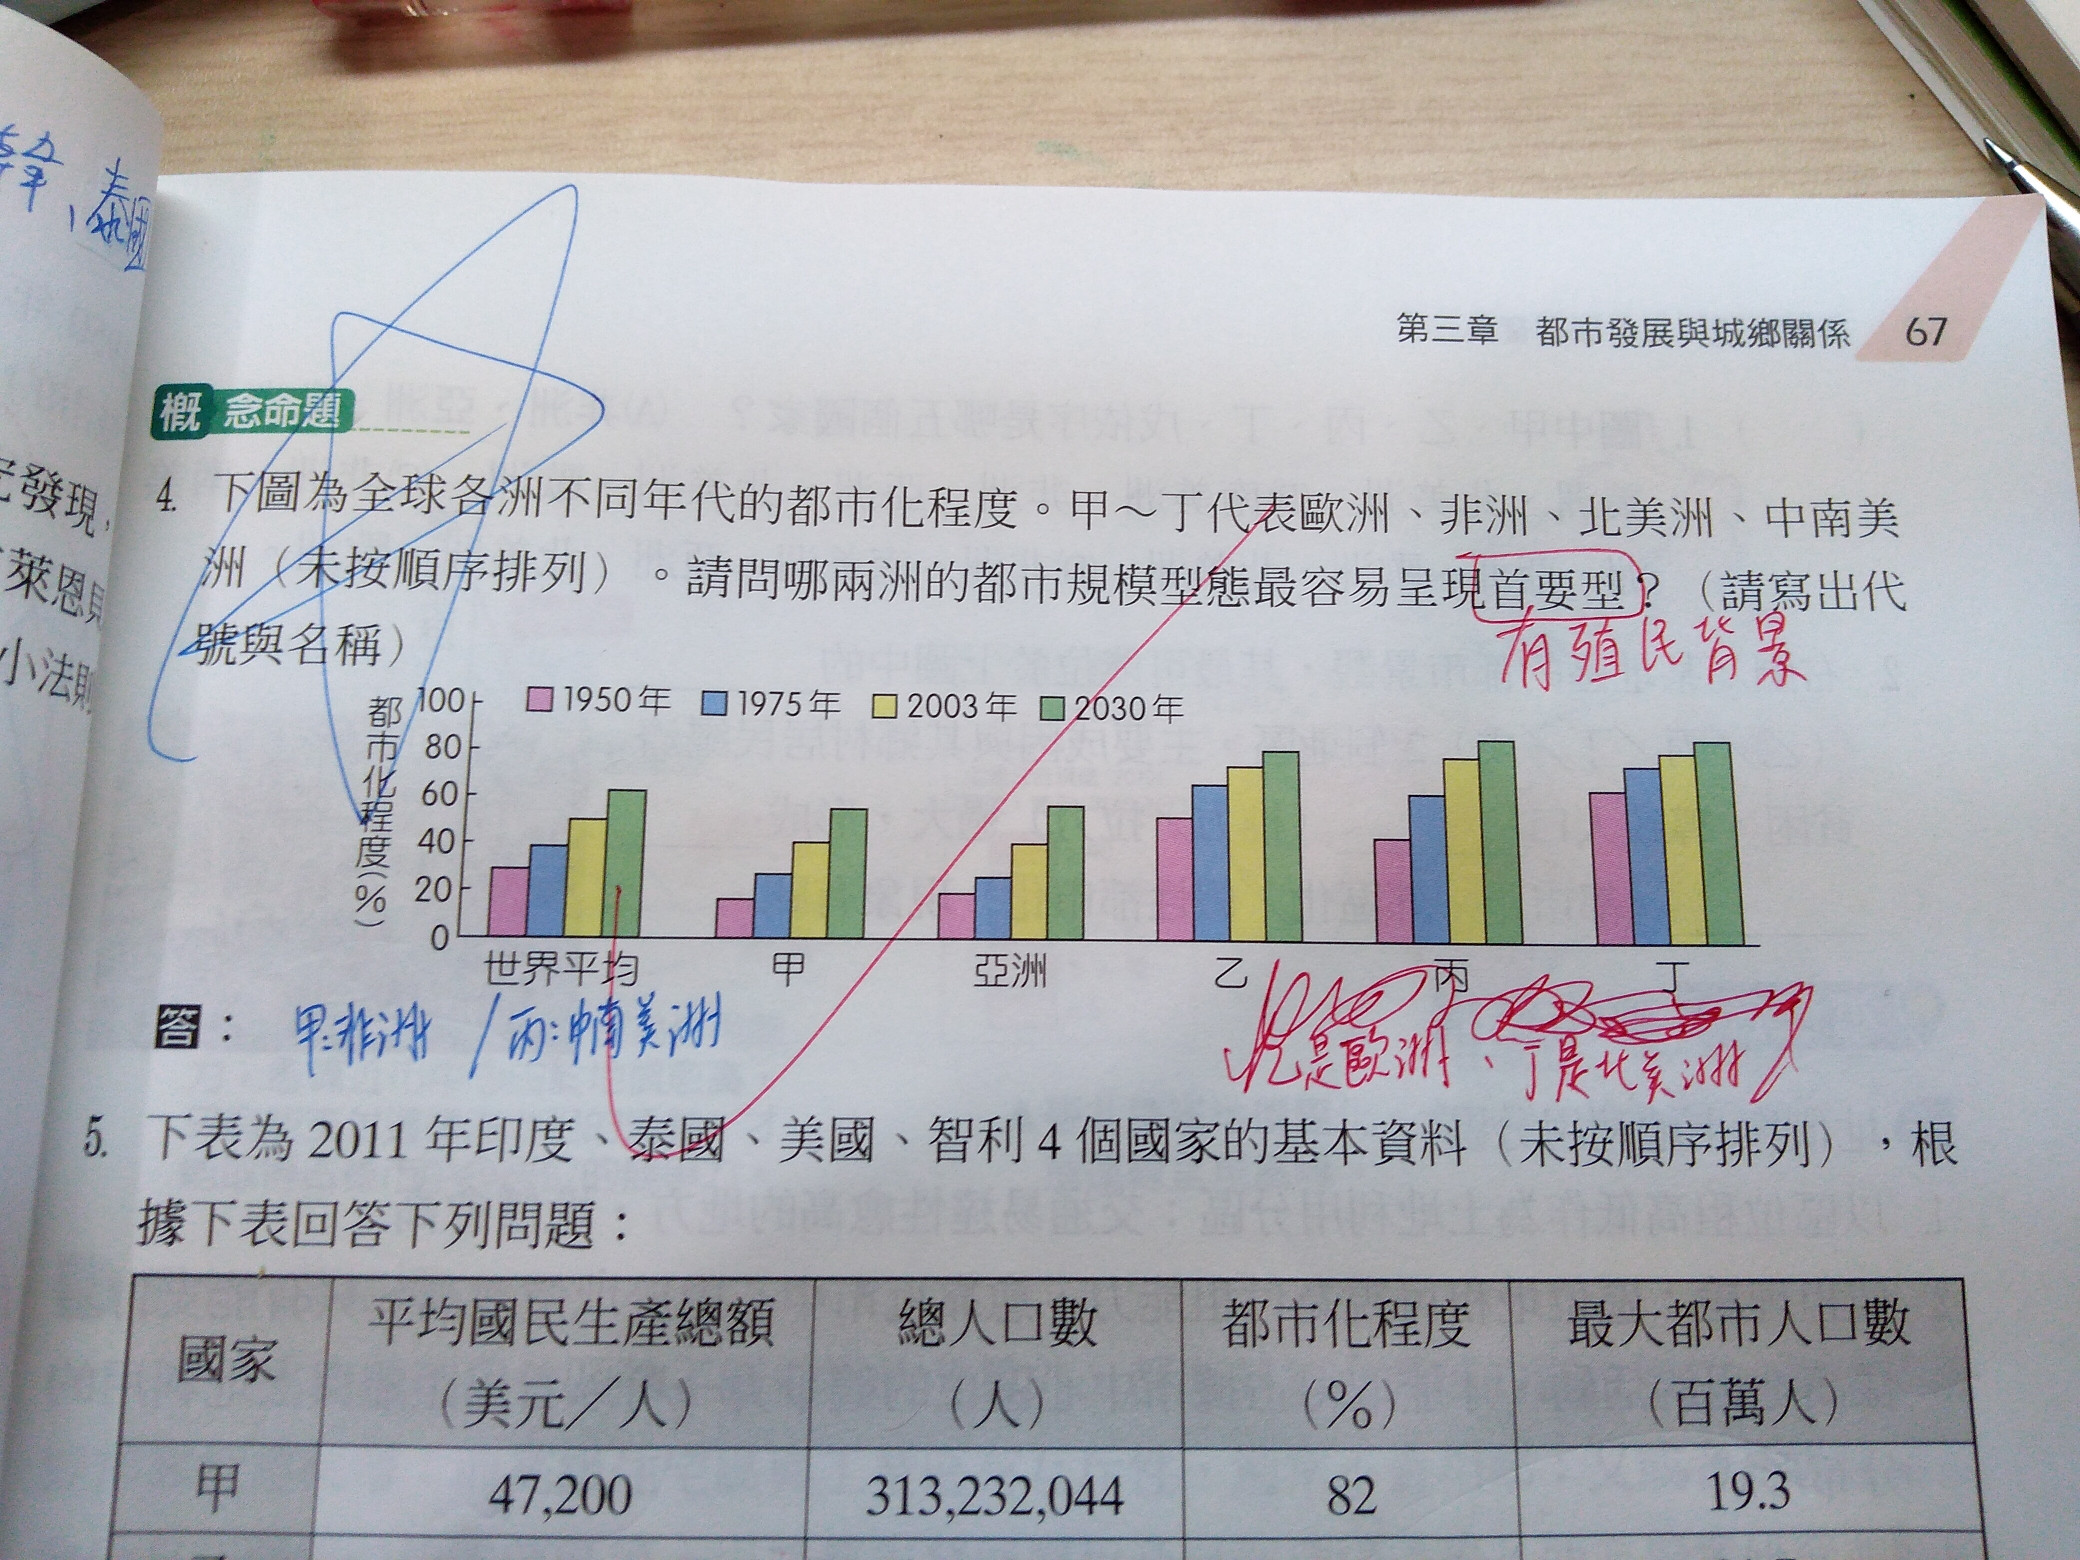 韓、泰國
發現，
萊恩
小法則
第三章 都市發展與城鄉關係 67
概念命題
4. 下圖為全球各洲不同年代的都市化程度。甲～丁代表歐洲、非洲、北美洲、中南美
洲（未按順序排列）。請問哪兩洲的都市規模型態最容易呈現首要型？（請寫出代
號與名稱）
有殖民背景
都市化程度(%)
100 80 60 40 20 0
1950年 1975年 2003年 2030年
世界平均 甲 亞洲 乙 丙 丁
答： 甲:非洲 / 丙:中南美洲
乙是歐洲、丁是北美洲
5. 下表為 2011 年印度、泰國、美國、智利 4 個國家的基本資料（未按順序排列），根
據下表回答下列問題：
國家 平均國民生產總額（美元／人） 總人口數（人） 都市化程度（%） 最大都市人口數（百萬人）
甲 47,200 313,232,044 82 19.3